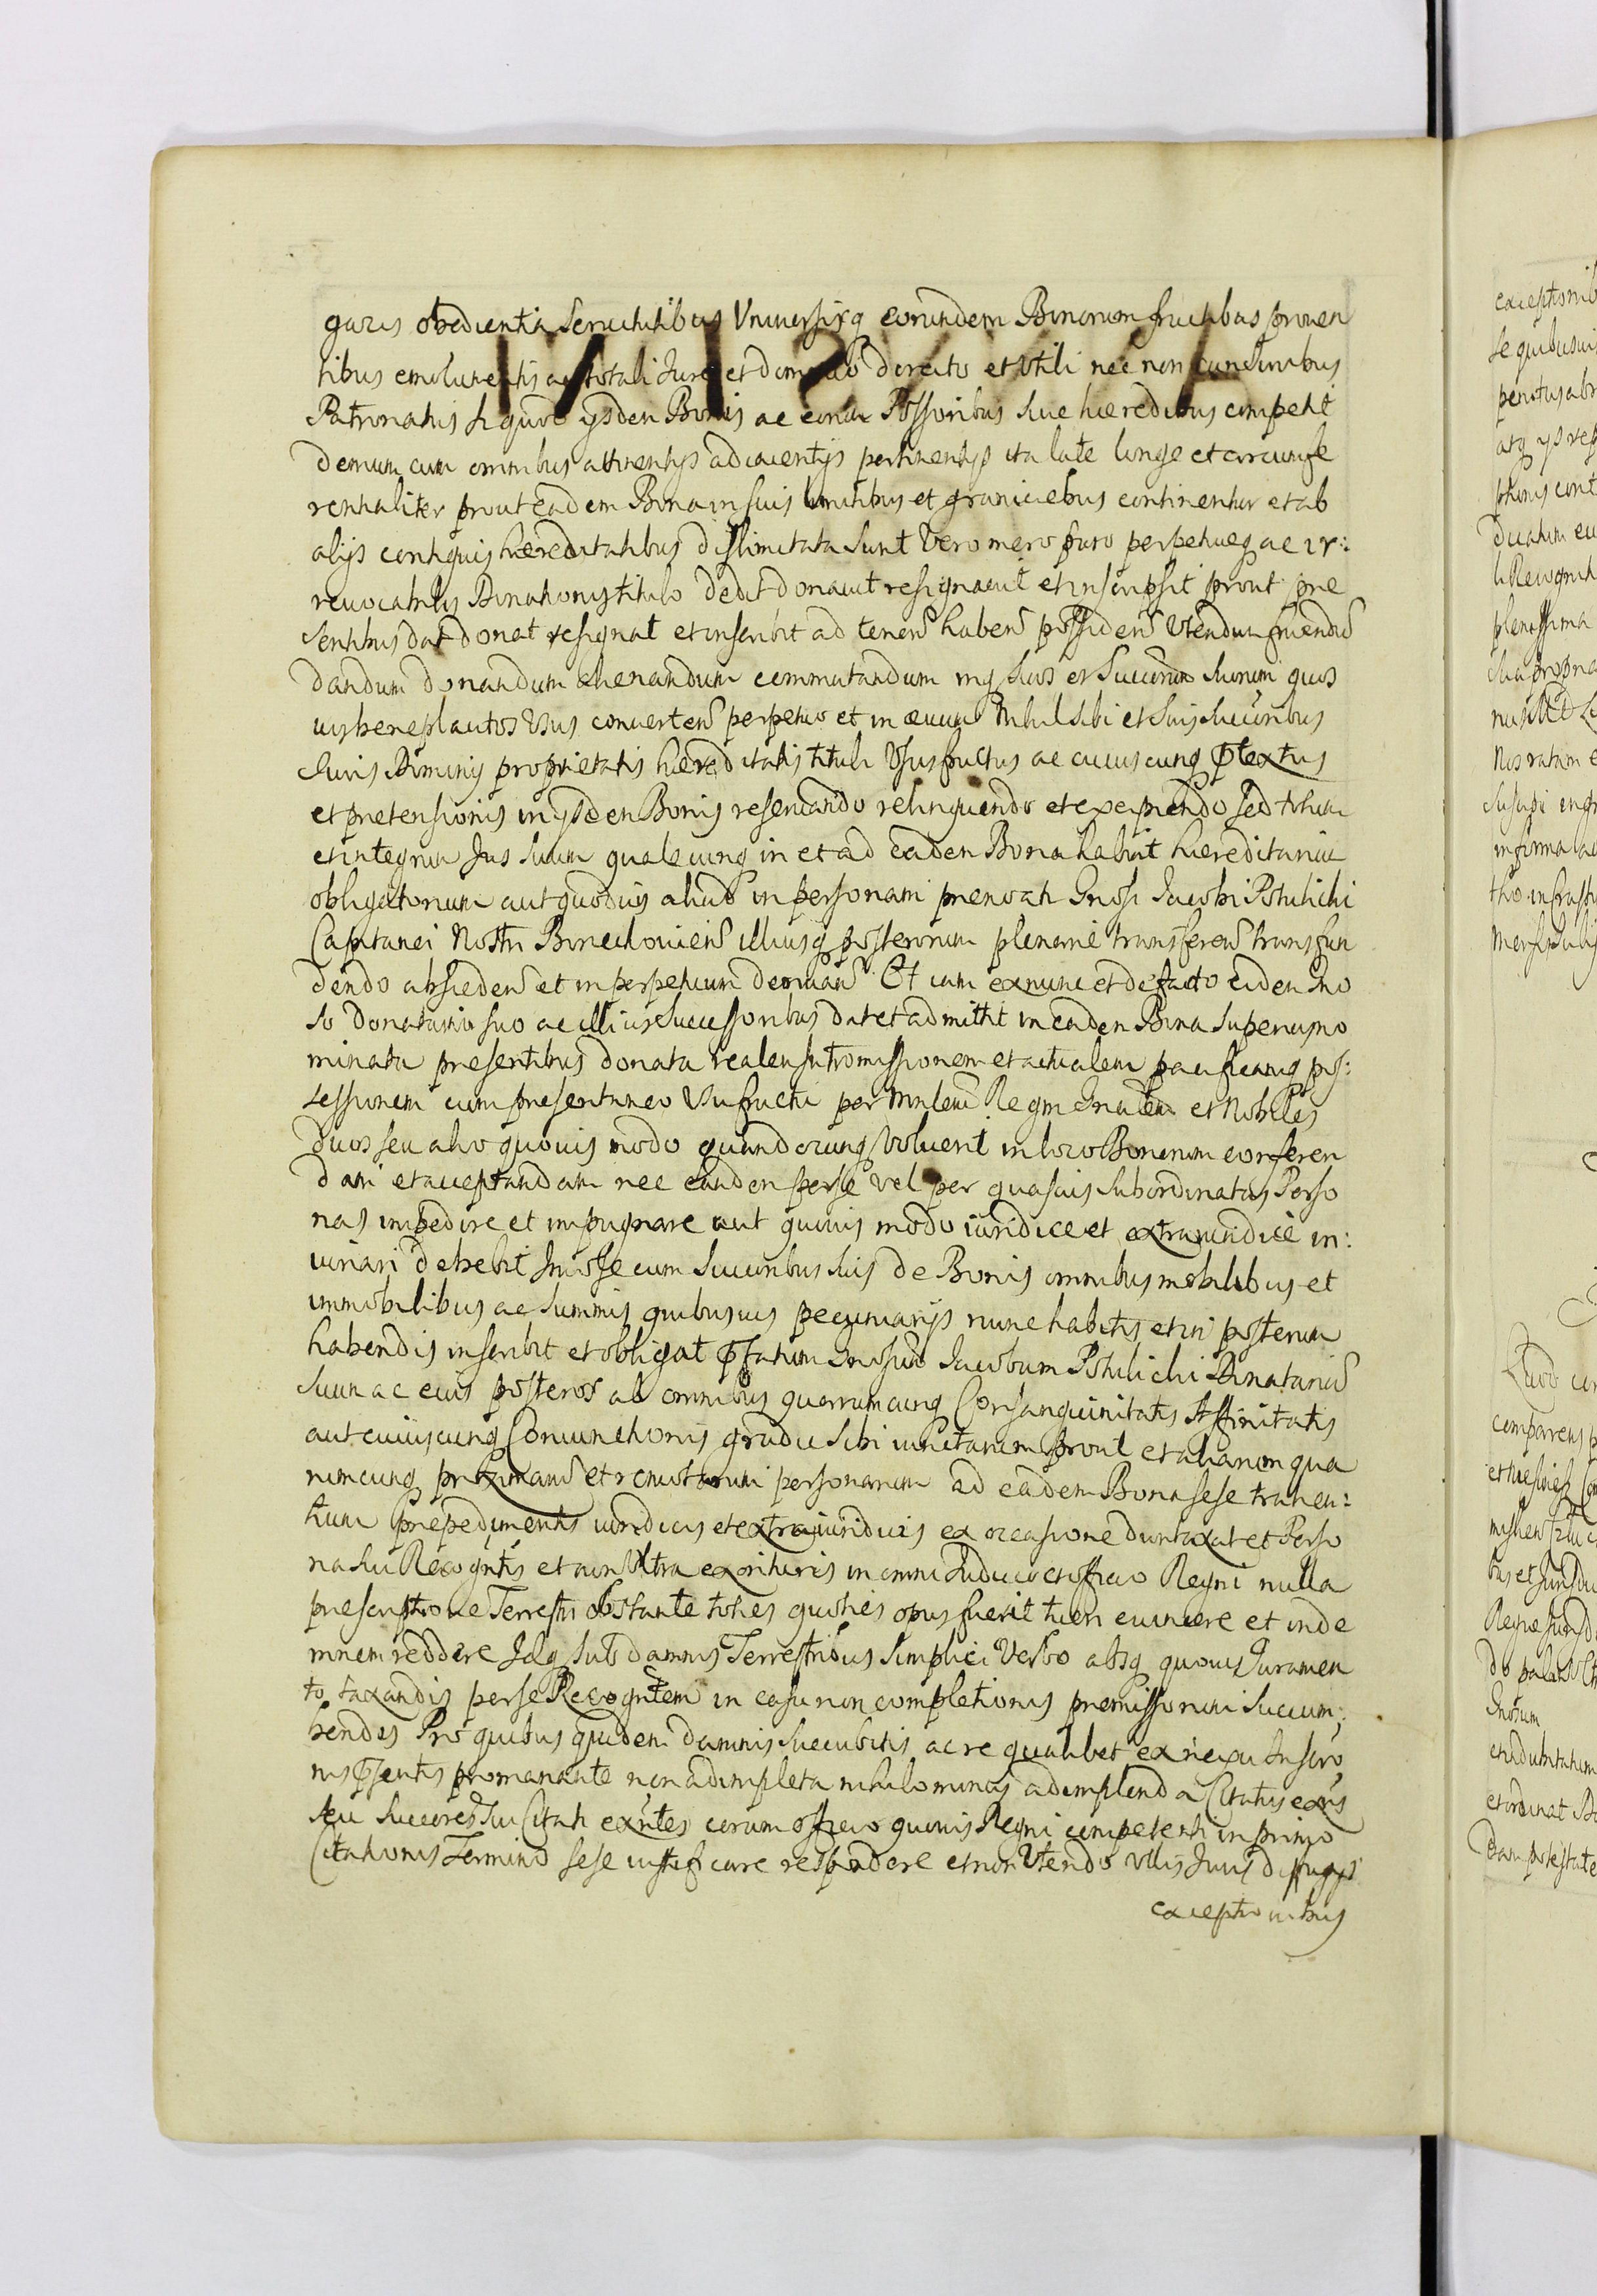 garis obedientia Seruitutibus Vniuersisq eorundem Bonorum fructibus prouen
tibus emolumentis ac totali Jure et dominio directo et vtili nec non cum Juribus
Patronatus si quod ijsdem Bonis ac eorum Possoribus siue hæredibus competit
demum cum omnibus attinentijs adiacentijs pertinentijs ita late longe et circumfe
rentialiter prout eadem Bona in suis limitibus et graniciebus continentur et ab
alijs contiguis hæreditatibus dislimitata sunt vero mero puro perpetuoq ac ir:
reuocabilis Donationis titulo dedit donauit resignauit et inscripsit prout præ
sentibus dat donat resignat et inscribit ad tenend habend possidend vtendum fruendum
dandum donandum alienandum commutandum inq suos et Succorum suorum quos
uis beneplacitos vsus conuertend perpetuo et in æuum Nihil sibi et suis succoribus
Juris Dominij proprietatis hæreditatis tituli Vsusfructus ac cuiuscunq prtextus
et pretensionis in ijsdem Bonis reseruando relinquendo et excipiendo sed totum
et integrum Jus suum qualecunq in et ad eadem Bona habuit hæreditarium
obligatorium aut quoduis aliud in personam prenoti Gnosi Jacobi Potulicki
Capitanei Nostri Borzechouiens illiusq posterorum plenarie transferend transfun
dendo abscedend et in perpetuum deriuand Et iam ex nunc et de facto eidem Gno
so Donatario suo ac illius Successoribus dat et admittit in eadem Bona superius no
minata presentibus donata realem Intromissionem et actualem pacificamq pos:
sessionem cum presentaneo Vsufructu per Minlem Regni Gnalem et Nobiles
duos seu alio quouis modo quandocunq voluerit in loco Bonorum conferen
dam et acceptandam nec eandem per se vel per quasuis subordinatas Perso
nas impedire et impugnare aut quouis modo iuridice et extraiuridice in:
uiari debebit Imo se cum Succoribus suis de Bonis omnibus mobilibus et
immobilibus ac summis quibusuis pecuniarijs nunc habitis et in posterum
habendis inscribit et obligat prfatum Gnosum Jacobum Potulicki Donatarium
suum ac eius posteros ab omnibus quarumcunq Consanguinitatis Affinitatis
aut cuiuscunq Coniunctionis gradu sibi iunctarum prout et aliarum qua
rumcunq proximarum et remotarum personarum ad eadem Bona sese trahen:
tium Prepedimentis iuridicis et extraiuridicis ex occasione duntaxat et Perso
na sui Recogntis et non vltra exorituris in omni Judicio et officio Regni nulla
prescriptione Terrestri obstante toties quoties opus fuerit tueri euincere et inde
mnem reddere Idq sub damnis Terrestribus simplici Verbo absq quouis Juramen
to taxandis per se Recogntem in casu non completionis premissorum succum:
bendis Pro quibus quidem damnis succubitis ac re qualibet ex nexu Inscrip
nis prsentis promanante non adimpleta nihilominus adimplenda Citatus exns
seu Succores sui Citati exntes coram officio quouis Regni competenti in primo
Citationis Termino sese iustificare respondere et non vtendo vllis Juris diffugijs
exceptionibus